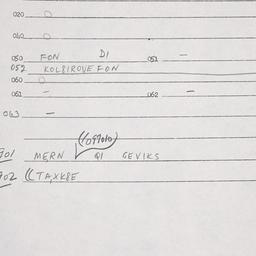 020 O
040 O
050 FON DI 051 —
052 KOLBIROVE FON
060 O
061 — 062 —
063 —
((099010)
901 MERN QI GEVIKS
902 ((TAXKBE